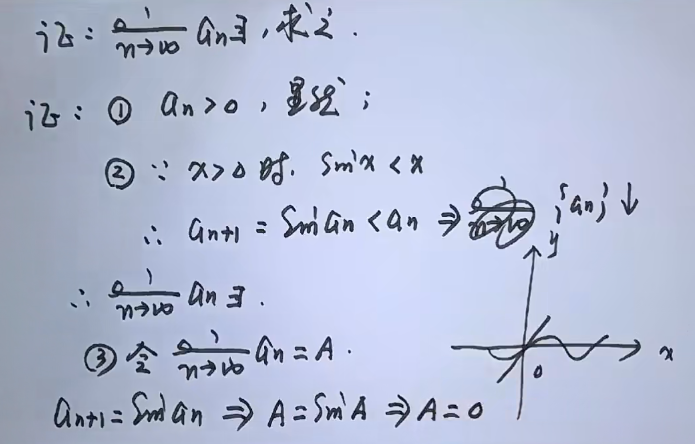 证: lim n→∞ an∃, 求之.
证: ① an>0, 显然;
② ∵ x>0时. sinx<x
∴ an+1 = sinan<an ⇒ {an}↓
∴ lim n→∞ an∃.
③ 令 lim n→∞ an=A.
an+1=sinan ⇒ A=sinA ⇒ A=0
y
x
0